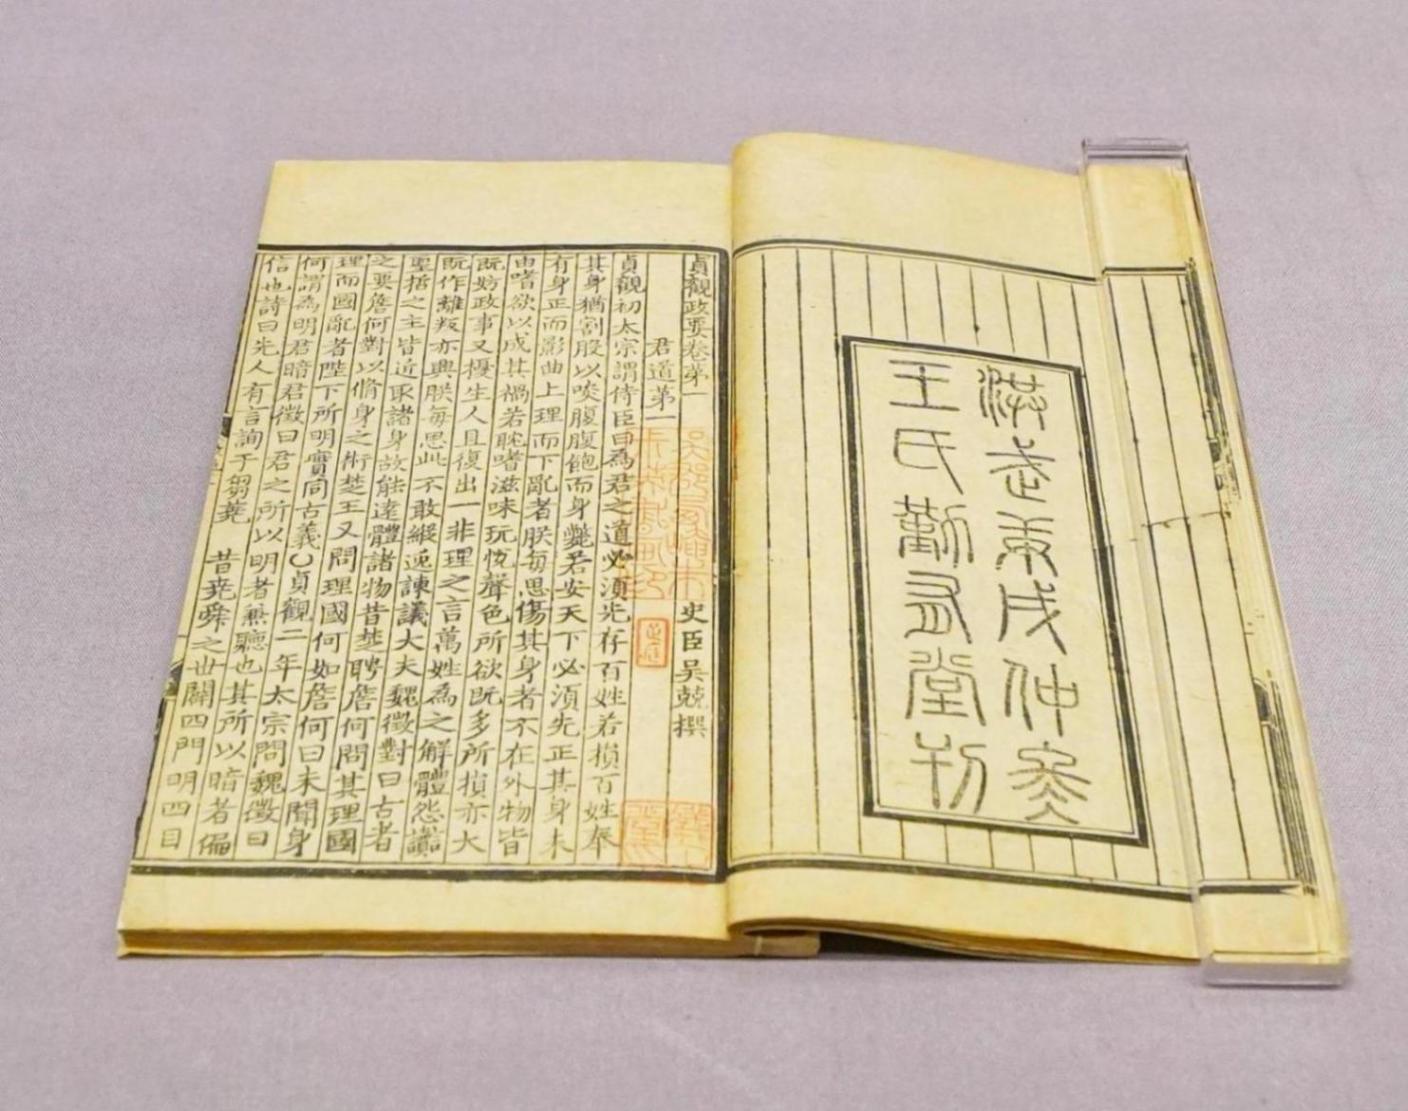 洪武庚戌仲冬
王氏勤有堂刊
貞觀政要卷第一 史臣吳兢撰
君道第一
貞觀初太宗謂侍臣曰為君之道必須先存百姓若損百姓奉
其身猶割股以啖腹腹飽而身斃若安天下必須先正其身未
有身正而影曲上理而下亂者朕每思傷其身者不在外物皆
由嗜欲以成其禍若耽嗜滋味玩悅聲色所欲既多所損亦大
既妨政事又擾生人且復出一非理之言萬姓為之解體怨讟
既作離叛亦興朕每思此不敢縱逸諫議大夫魏徵對曰古者
聖哲之主皆近取諸身故能遠體諸物昔楚聘詹何問其理國
之要詹何對以脩身之術楚王又問理國何如詹何曰未聞身
理而國亂者陛下所明實同古義○貞觀二年太宗問魏徵曰
何謂為明君暗君徵曰君之所以明者兼聽也其所以暗者偏
信也詩曰先人有言詢于芻蕘 昔堯舜之世闢四門明四目